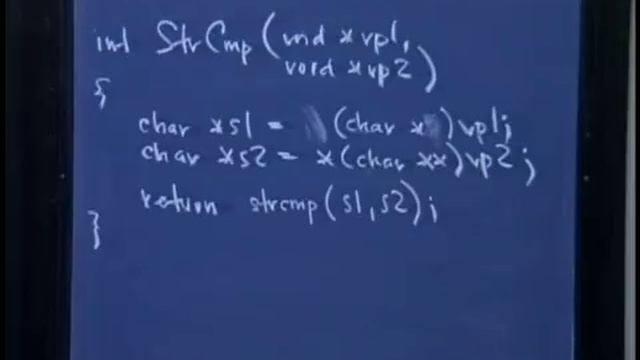 int StrCmp(void *vp1,
void *vp2)
{
char *s1 = (char *)vp1;
char *s2 = *(char **)vp2;
return strcmp(s1,s2);
}